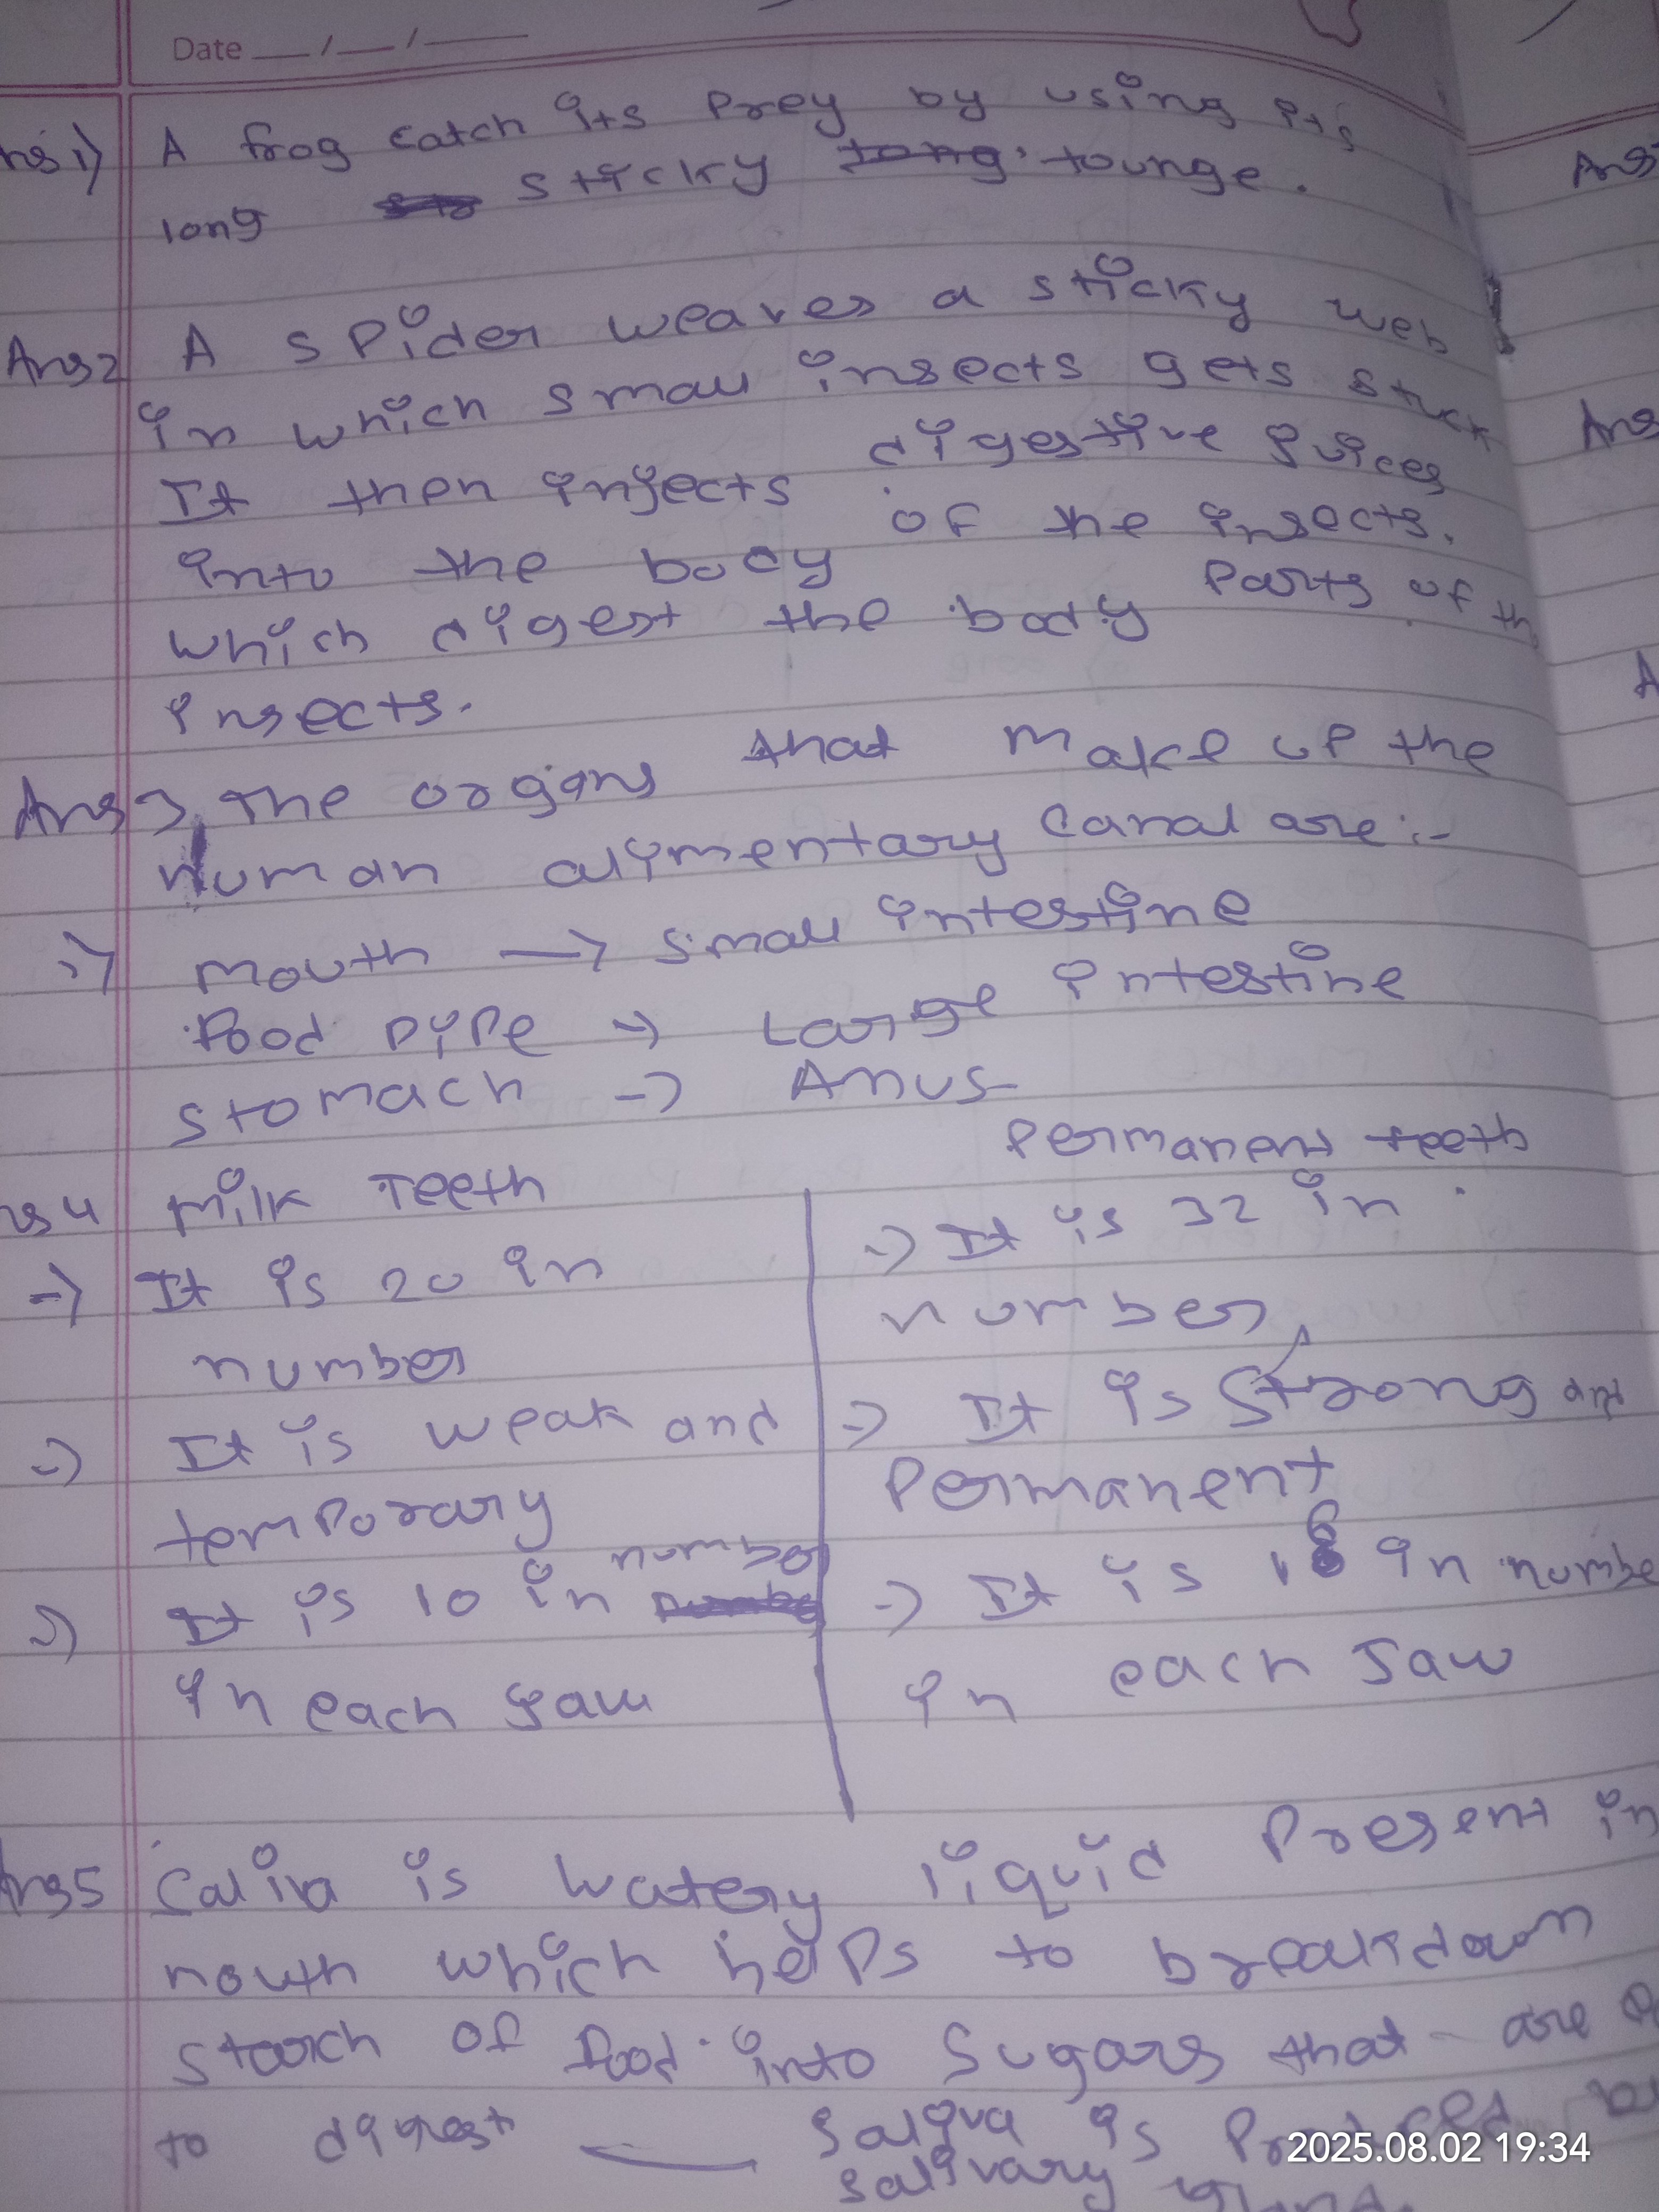 Date __/__/____
ns 1) A frog catch its prey by using its
long sticky tounge.
Ans 2 A spider weaves a sticky web
in which small insects gets stuck
It then injects digestive juices
into the body of the insects.
which digest the body parts of th
insects.
Ans 3, The organs that make up the
human alimentary canal are :-
Mouth → small intestine
Food pipe → Large intestine
Stomach → Anus
ns 4 Milk Teeth Permanent teeth
→ It is 20 in → It is 32 in
number number
→ It is weak and → It is Strong and
temporary Permanent
→ It is 10 in number → It is 16 in numbe
in each jaw in each Jaw
Ans 5 Caliva is watery liquid Present in
mouth which helps to breakdown
starch of food into Sugars that are
to digest Saliva is Produced
salivary gland.
2025.08.02 19:34
Ans
Ans
A